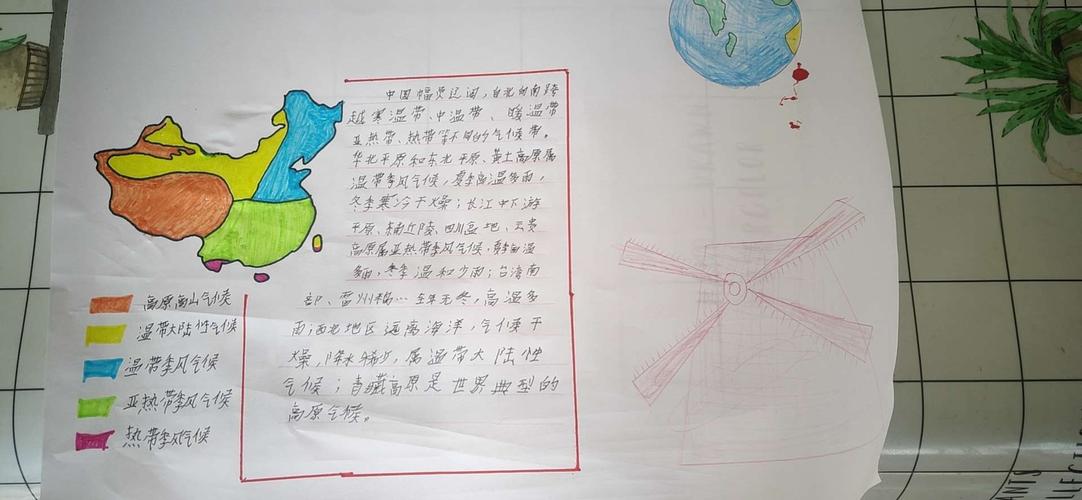 中国幅员辽阔,自北向南跨
越寒温带、中温带、暖温带
亚热带、热带等不同的气候带。
华北平原和东北平原、黄土高原属
温带季风气候,夏季高温多雨,
冬季寒冷干燥;长江中下游
平原、江南丘陵、四川盆地、云贵
高原属亚热带季风气候,夏季高温
多雨,冬季温和少雨;台湾南
部、雷州… 全年无冬,高温多
雨;西北地区远离海洋,气候干
燥,降水稀少,属温带大陆性
气候;青藏高原是世界典型的
高原气候。
高原高山气候
温带大陆性气候
温带季风气候
亚热带季风气候
热带季风气候